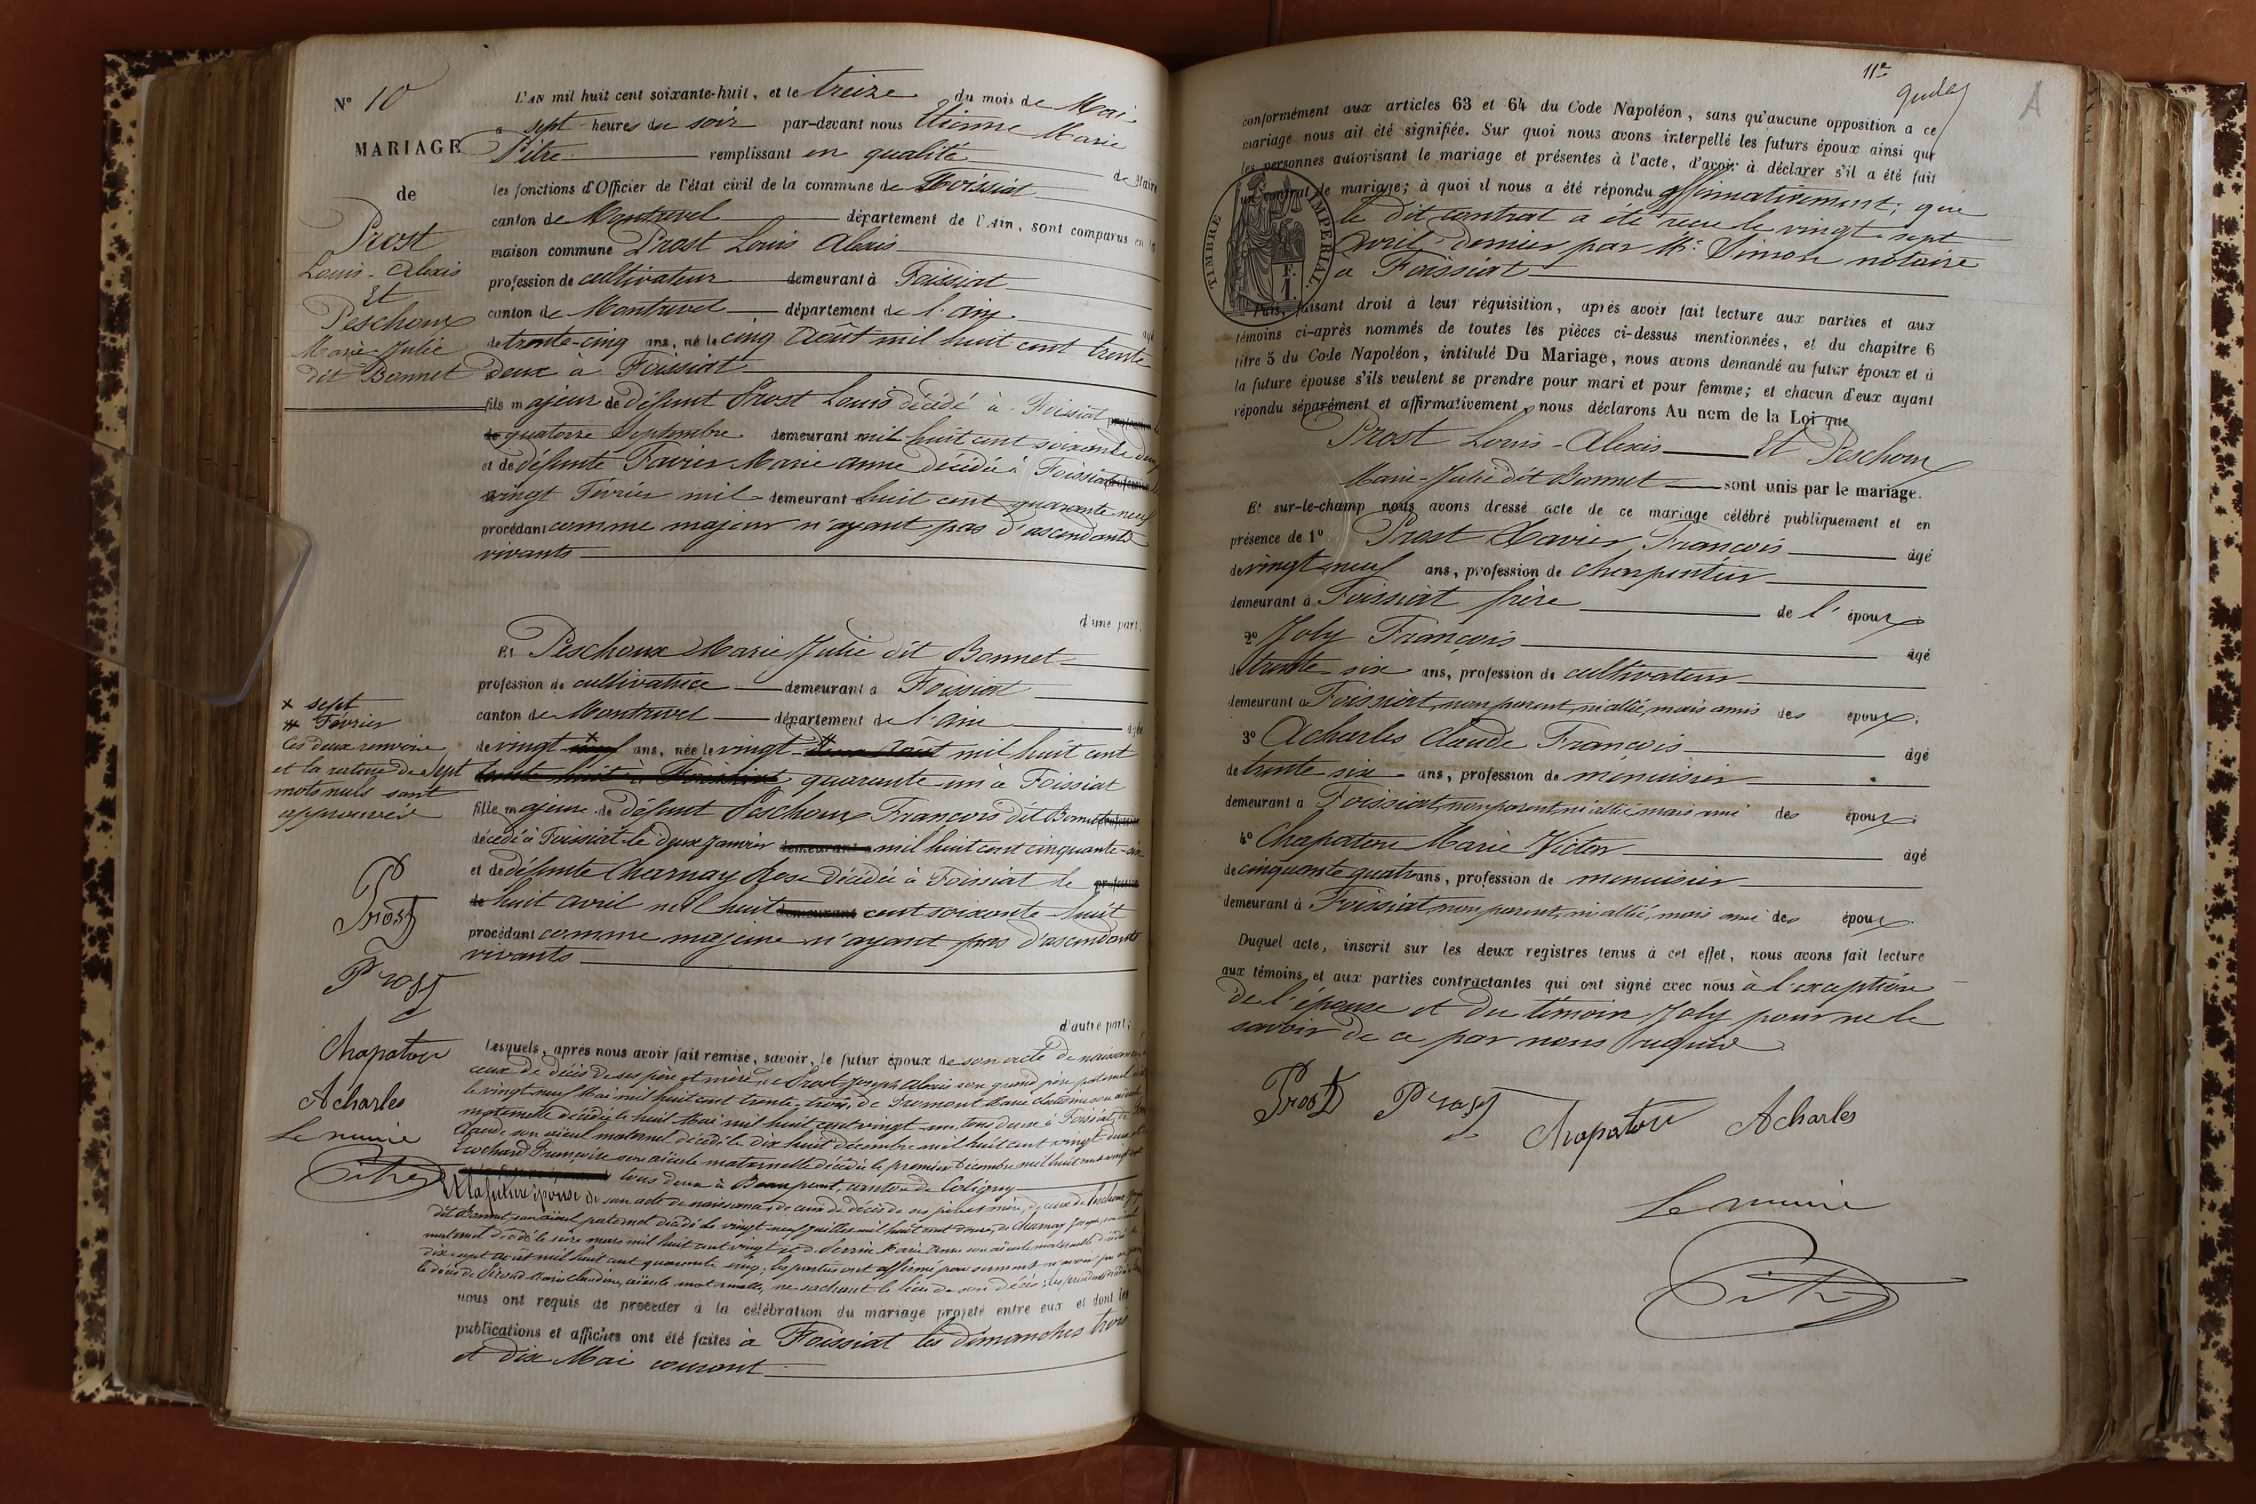 N° 10
MARIAGE
de
Prost
Louis-Alexis
Et
Peschoux
Marie-Julie
dit Bonnet
L'AN mil huit cent soixante-huit, et le treize du mois de Mai
a sept heures du soir par-devant nous Etienne Marie
Pitre remplissant en qualité de Maire
les fonctions d'Officier de l'état civil de la commune de Foissiat
canton de Montrevel département de l'Ain, sont comparus en la
maison commune Prost Louis Alexis
profession de cultivateur demeurant à Foissiat
canton de Montrevel département de l'ain âgé
de trente-cinq ans, né le cinq Août mil huit cent trente
deux à Foissiat
fils majeur de défunt Prost Louis décédé à Foissiat profession le
de quatorze Septembre demeurant mil huit cent soixante deux
et de défunte Favier Marie anne décédée à Foissiat profession le
vingt Février mil demeurant huit cent quarante neuf
procédant comme majeur n'ayant pas d'ascendants
vivants
d'une part.
Et Peschoux Marie Julie dit Bonnet
profession de cultivatrice demeurant à Foissiat
canton de Montrevel département de l'ain âgée
de vingt neuf ans, née le vingt deux Août mil huit cent
trente huit à Foissiat quarante un à Foissiat
fille majeure de défunt Peschoux François dit Bonnet profession
décédé à Foissiat le deux Janvier demeurant a mil huit cent cinquante-six
et de défunte Charnay Rose décédée à Foissiat le profession
de huit avril mil huit demeurant cent soixante huit
procédant comme majeure n'ayant pas d'ascendants
vivants
d'autre part;
x sept
# Février
Ces deux renvois
et la rature de sept
mots nuls sont
approuvés
Prost
Prost
Chapatou
Acharles
Le maire
Pitre
Lesquels, après nous avoir fait remise, savoir, le futur époux de son acte de naissance,
ceux de décès de ses père et mère, de Prost Joseph Alexis son grand père paternel
le vingt neuf Mai mil huit cent trente trois, de Fromont Marie Claudine son aïeule
maternelle décédée le huit Mai mil huit cent vingt un, tous deux à Foissiat, de
Claude son aïeul maternel décédé le dix huit décembre mil huit cent vingt deux et
Cochard Françoise son aïeule maternelle décédée le premier Décembre mil huit cent vingt
tous deux à Beaupont, canton de Coligny
Et la future épouse de son acte de naissance, de ceux de décès de ses père et mère, de ceux de Peschoux
dit Bonnet son aïeul paternel décédé le vingt-neuf Juillet mil huit cent douze, de Charnay Joseph, son aïeul
maternel décédé le seize mars mil huit cent vingt et de Perrin Marie Anne son aïeule maternelle décédée le
dix sept Août mil huit cent quarante cinq; les parties ont affirmé par serment n'avoir pu
le décès de Marie Claudine, aïeule maternelle, ne sachant le lieu de son décès; les prénoms
nous ont requis de procéder à la célébration du mariage projeté entre eux et dont les
publications et affiches ont été faites à Foissiat les dimanches trois
et dix Mai courant
11e
A
conformément aux articles 63 et 64 du Code Napoléon, sans qu'aucune opposition a ce
mariage nous ait été signifiée. Sur quoi nous avons interpellé les futurs époux ainsi que
les personnes autorisant le mariage et présentes à l'acte, d'avoir à déclarer s'il a été fait
un contrat de mariage; à quoi il nous a été répondu affirmativement, que
le dit contrat a été reçu le vingt-sept
avril dernier par Me Simon notaire
à Foissiat
TIMBRE IMPERIAL
F.
1.
Puis, faisant droit à leur réquisition, après avoir fait lecture aux parties et aux
témoins ci-après nommés de toutes les pièces ci-dessus mentionnées, et du chapitre 6
titre 5 du Code Napoléon, intitulé Du Mariage, nous avons demandé au futur époux et à
la future épouse s'ils veulent se prendre pour mari et pour femme; et chacun d'eux ayant
répondu séparément et affirmativement, nous déclarons Au nom de la Loi que
Prost Louis-Alexis Et Peschoux
Marie-Julie dit Bonnet sont unis par le mariage.
Et sur-le-champ nous avons dressé acte de ce mariage célébré publiquement et en
présence de 1° Prost Xavier François âgé
de vingt neuf ans, profession de charpentier
demeurant à Foissiat frère de l'époux
2° Joly François âgé
de trente six ans, profession de cultivateur
demeurant à Foissiat, non parent, ni allié, mais amis des époux;
3° Acharles Claude François âgé
de trente six ans, profession de menuisier
demeurant à Foissiat, non parent, ni allié, mais ami des époux;
4° Chapatou Marie Victor âgé
de cinquante quatre ans, profession de menuisier
demeurant à Foissiat, non parent, ni allié, mais ami des époux.
Duquel acte, inscrit sur les deux registres tenus à cet effet, nous avons fait lecture
aux témoins et aux parties contractantes qui ont signé avec nous à l'exception
de l'épouse et du témoin Joly pour ne le
savoir de ce par nous requis
Prost Prost Chapatou Acharles
Le maire
Pitre